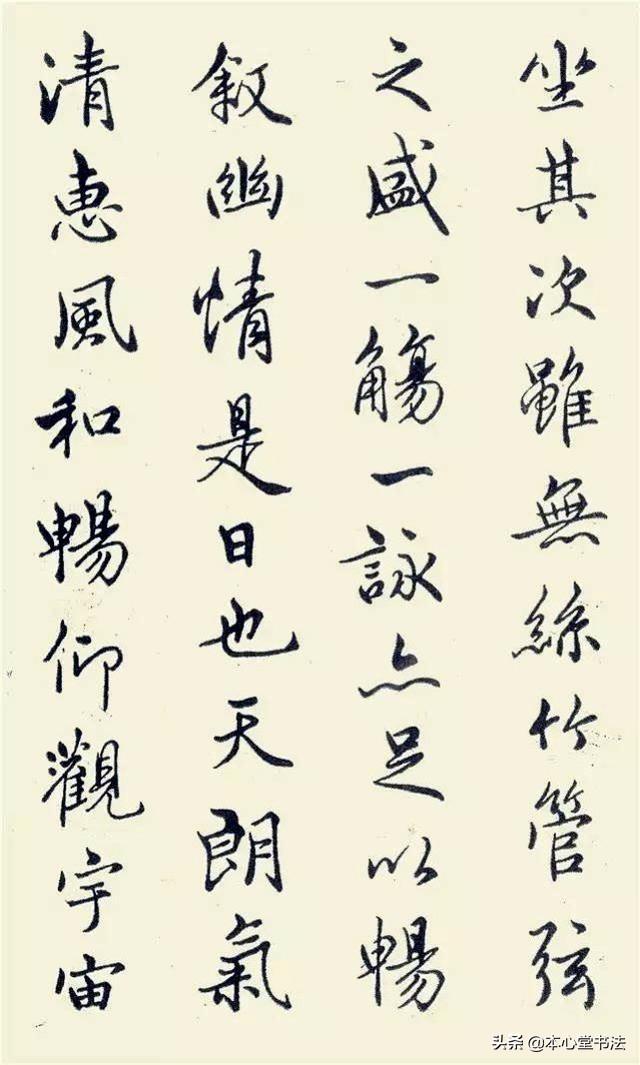 坐其次雖無絲竹管弦
之盛一觴一詠亦足以暢
敘幽情是日也天朗氣
清惠風和暢仰觀宇宙
头条@本心堂书法